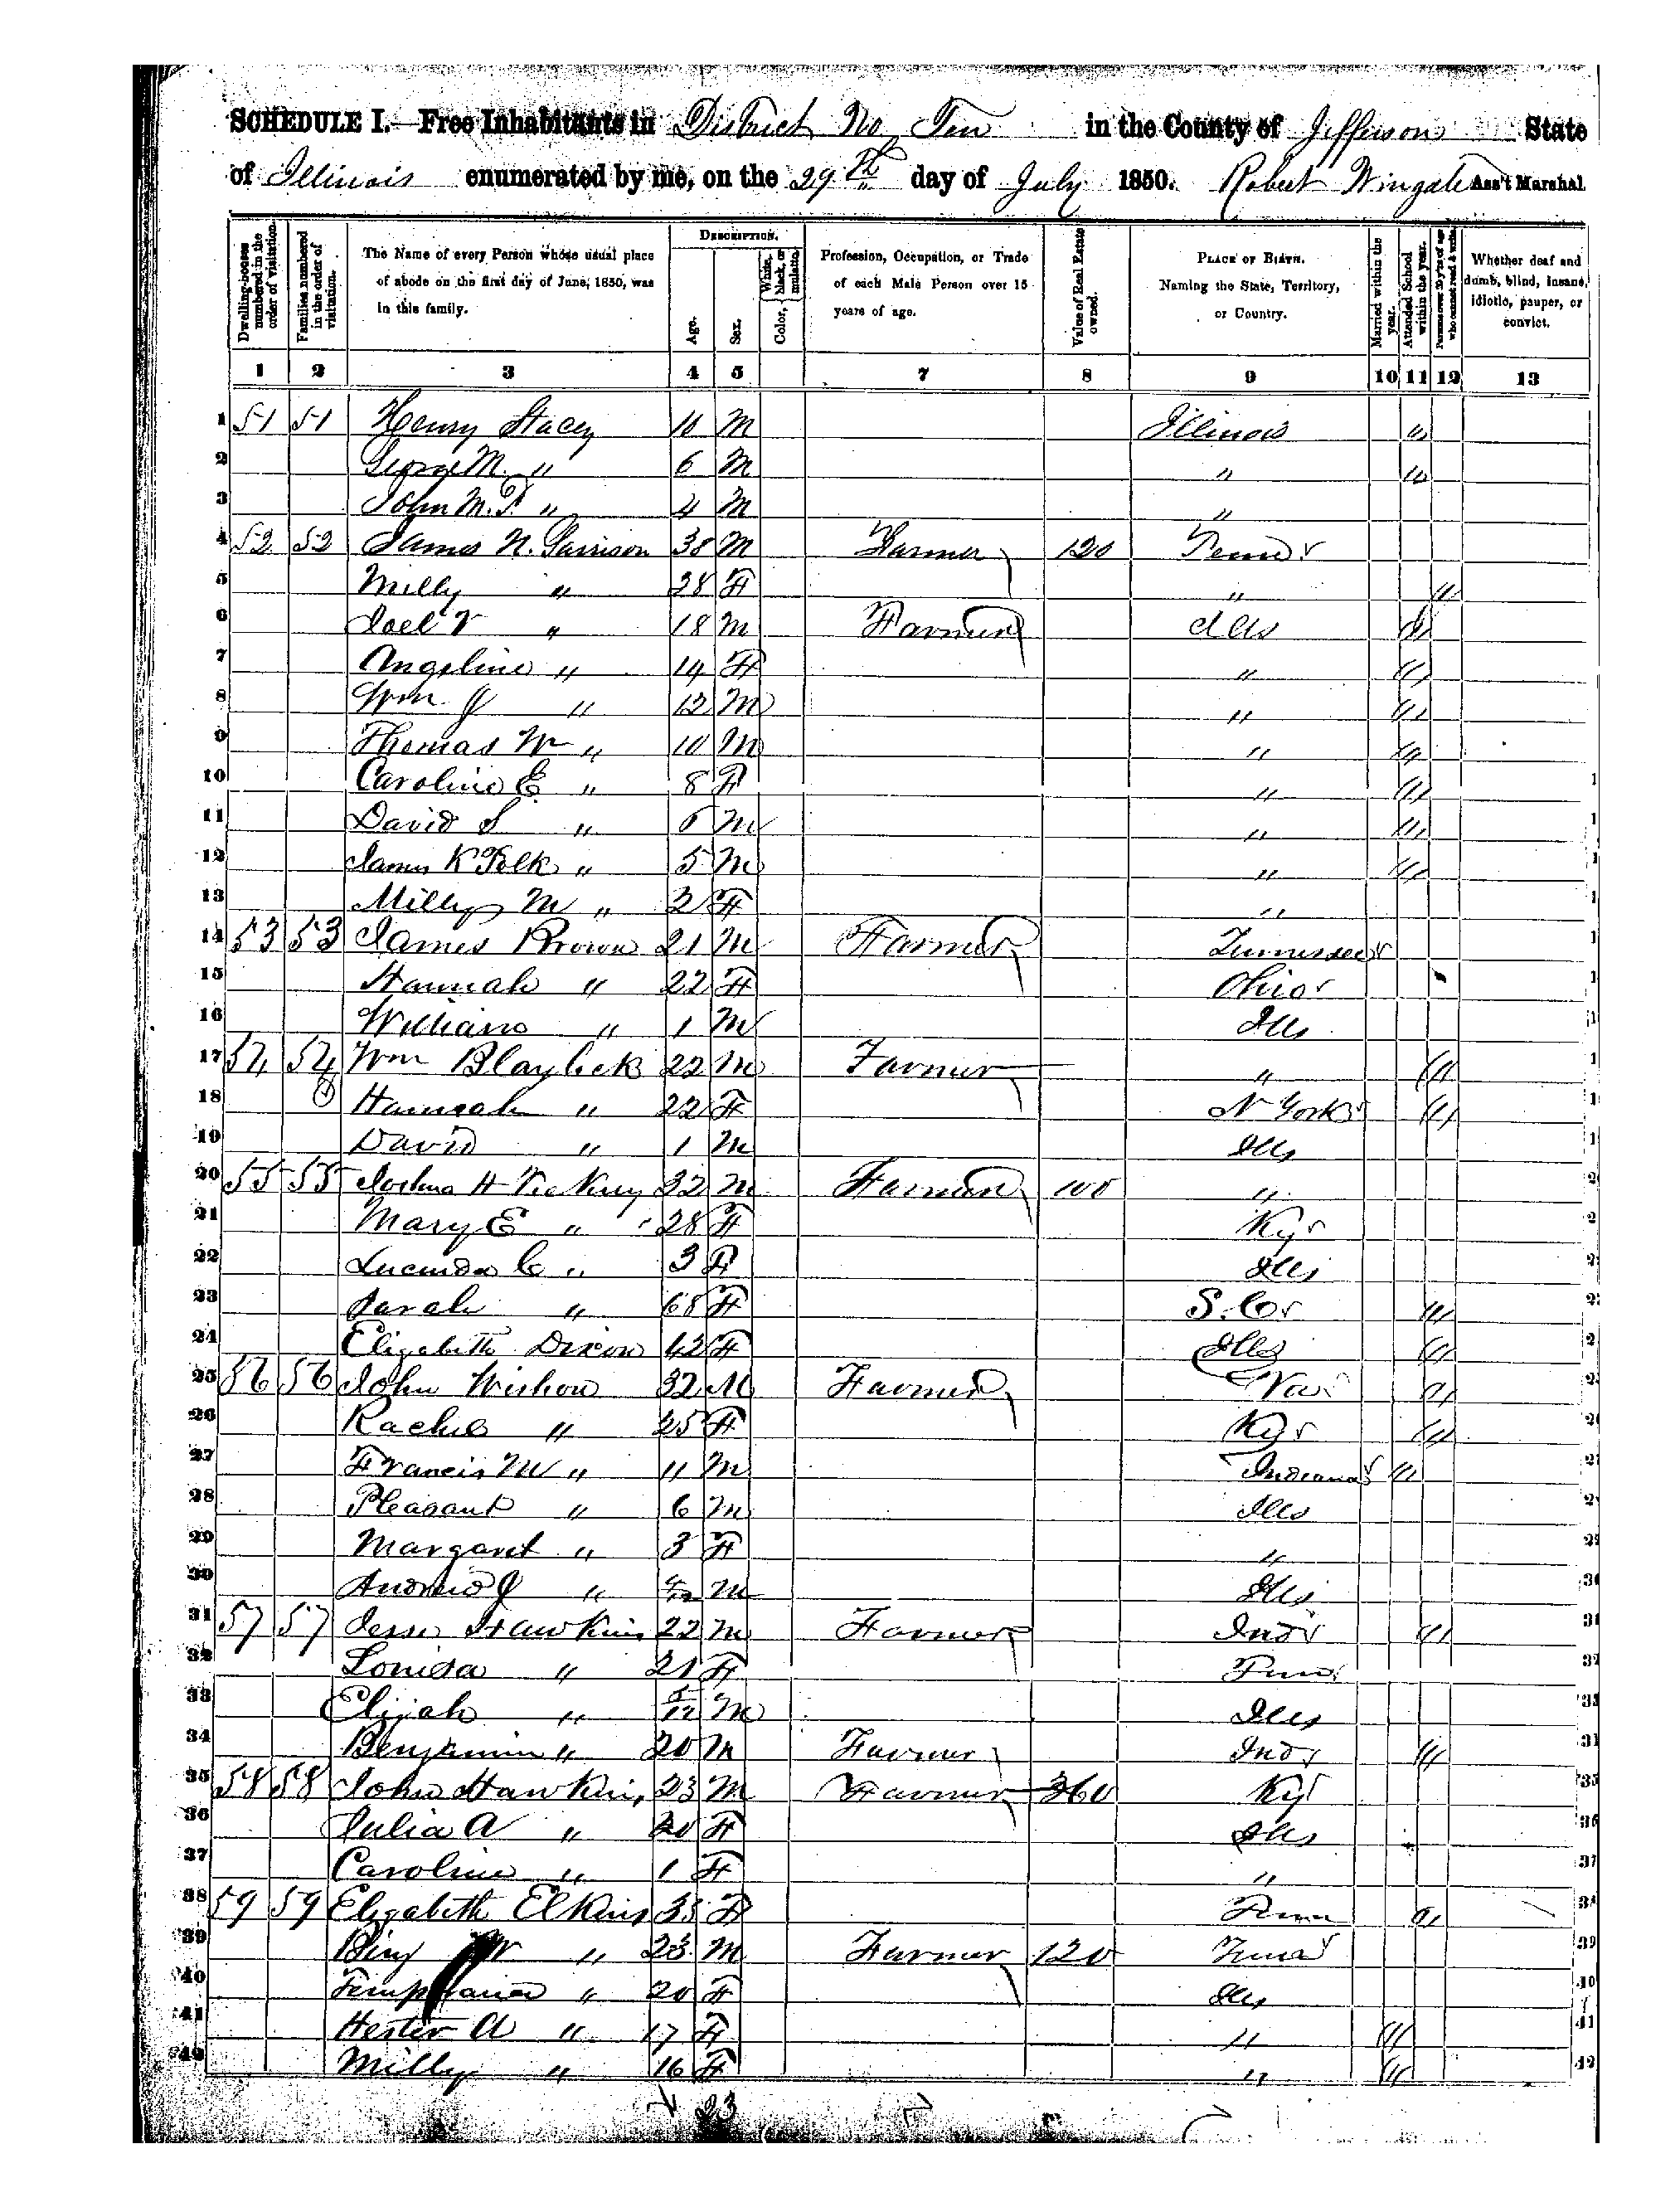 SCHEDULE I.—Free Inhabitants in District No Ten in the County of Jefferson State
of Illinois enumerated by me, on the 29th day of July 1850. Robert Wingate Ass't Marshal
Dwelling-houses numbered in the order of visitation.
Families numbered in the order of visitation.
The Name of every Person whose usual place of abode on the first day of June, 1850, was in this family.
DESCRIPTION.
Age.
Sex.
Color, White, black, or mulatto.
Profession, Occupation, or Trade of each Male Person over 15 years of age.
Value of Real Estate owned.
PLACE OF BIRTH. Naming the State, Territory, or Country.
Married within the year.
Attended School within the year.
Persons over 20 y'rs of age who cannot read & write.
Whether deaf and dumb, blind, insane, idiotic, pauper, or convict.
1 2 3 4 5 7 8 9 10 11 12 13
1 51 51 Henry Stacey 10 M Illinois "
2 George M. " 6 M " "
3 John M. T. " 4 M "
4 52 52 James N. Garrison 38 M Farmer 120 Tenn
5 Milly " 28 F " "
6 Joel V " 18 M Farmer Ills "
7 Angeline " 14 F " "
8 Wm J " 12 M " "
9 Thomas W " 10 M " "
10 Caroline E " 8 F " "
11 David S " 6 M " "
12 James K Polk " 5 M " "
13 Milly M " 2 F "
14 53 53 James Brown 21 M Farmer Tennessee
15 Hannah " 22 F Ohio
16 William " 1 M Ills
17 54 54 Wm Blaylock 22 M Farmer " "
18 Hannah " 22 F N York "
19 David " 1 M Ills
20 55 55 Joshua H 32 M Farmer 100 "
21 Mary E " 28 F Ky
22 Lucinda C " 3 F Ills
23 Sarah " 68 F S. C "
24 Elizabeth Dixon 42 F Ills "
25 56 56 John Wishon 32 M Farmer Va "
26 Rachel " 25 F Ky "
27 Francis M " 11 M Indiana "
28 Pleasant " 6 M Ills
29 Margaret " 3 F "
30 Andrew J " M Ills
31 57 57 Jesse Hawkins 22 M Farmer Ind "
32 Louisa " 21 F Tenn
33 Elijah " M Ills
34 Benjamin " 20 M Farmer Ind "
35 58 58 John Hawkins 23 M Farmer 360 Ky
36 Julia A " 20 F Ills
37 Caroline " 1 F "
38 59 59 Elizabeth Elkins F Tenn "
39 W " 23 M Farmer 120 Tenn
40 " 20 F Ills
41 Hester A " 17 F " "
42 Milly " 16 F " "
23